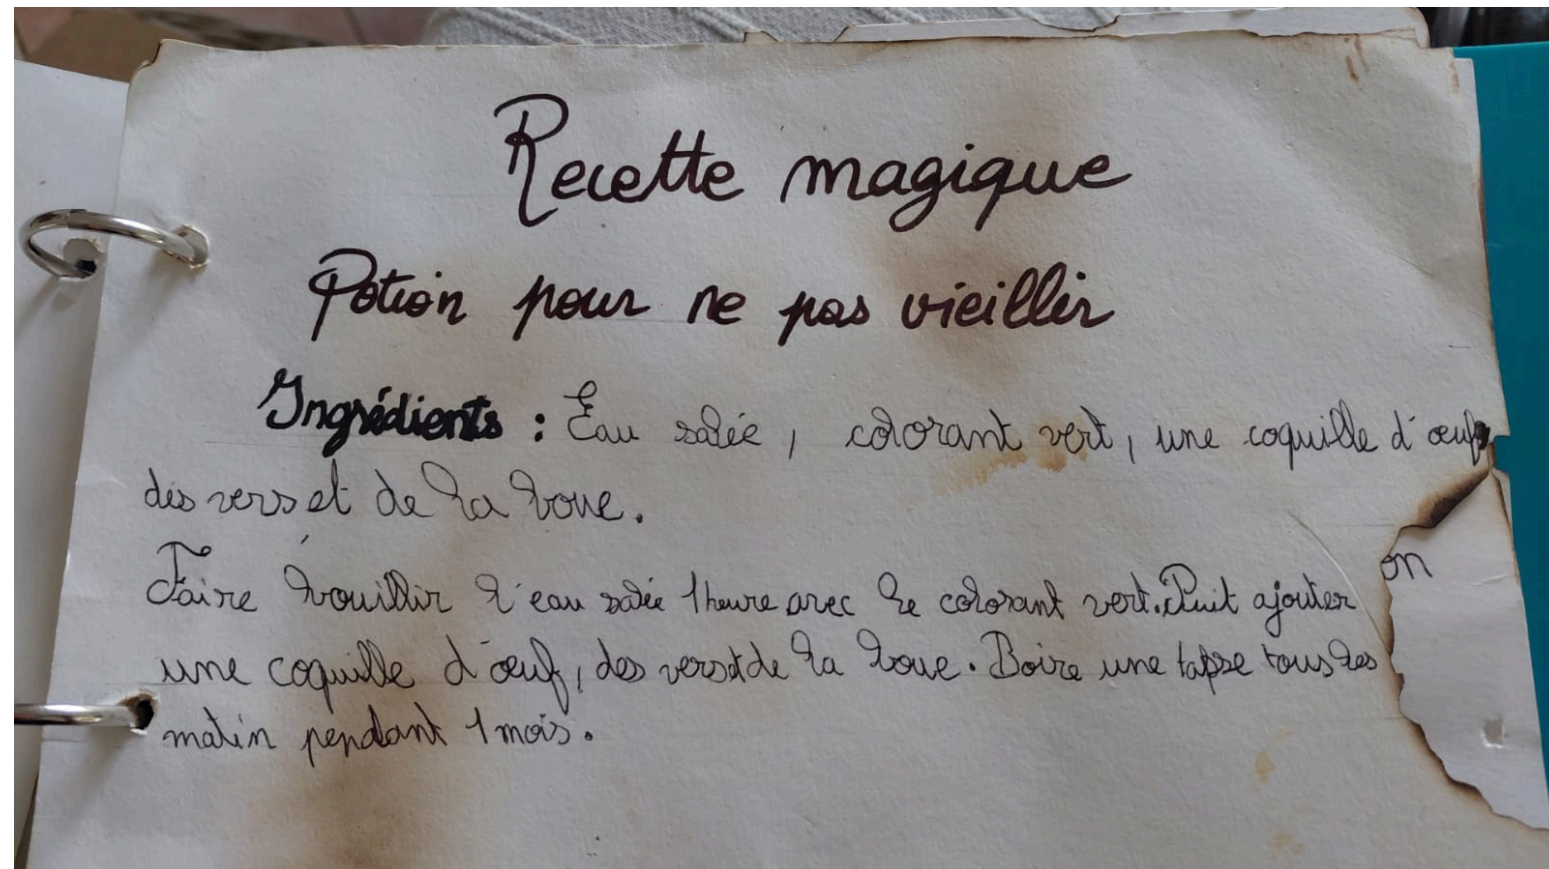 Recette magique
Potion pour ne pas vieillir
Ingrédients : Eau salée, colorant vert, une coquille d'œuf
des vers et de la boue.
on
Faire bouillir l'eau salée 1 heure avec le colorant vert. Puit ajouter
une coquille d'œuf, des vers et de la boue. Boire une tasse tous les
matin pendant 1 mois.